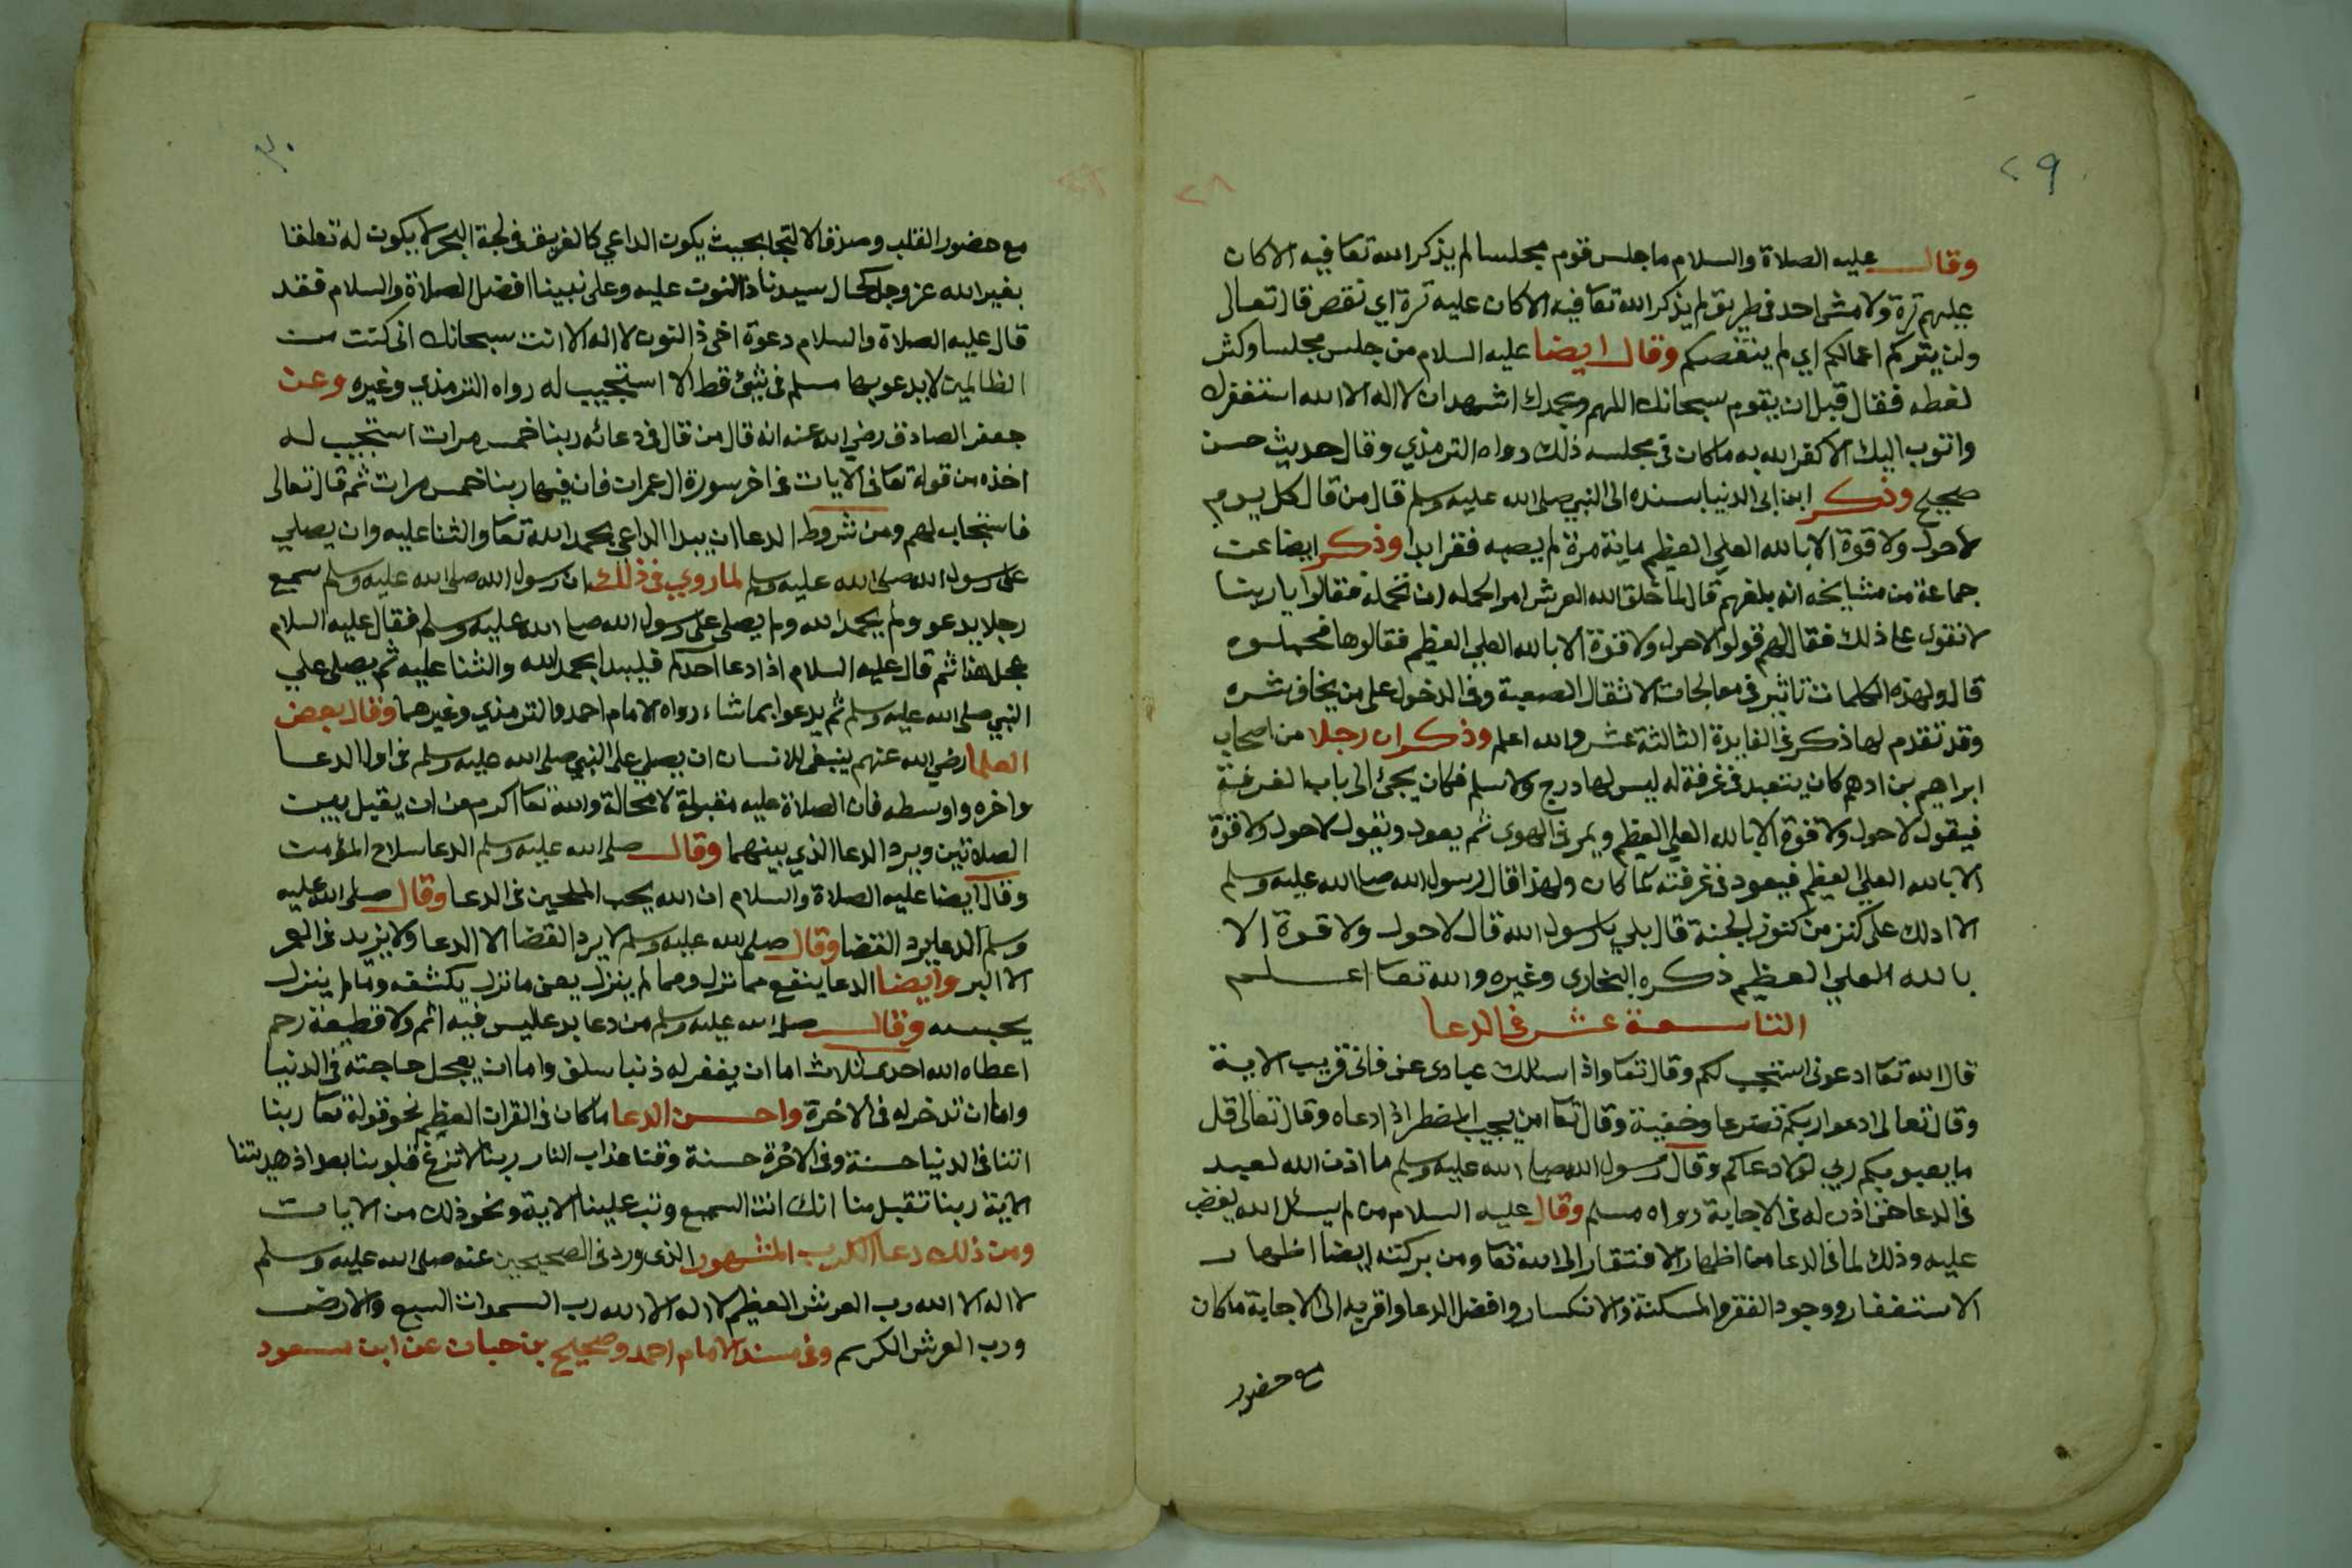 ٢٩
٢٨
وقال عليه الصلاة والسلام ما جلس قوم مجلسا لم يذكر الله تعا فيه الا كان
عليهم ترة ولا مشى احد في طريق لم يذكر الله تعا فيه الا كان عليه ترة اي نقص قال تعالى
ولن يتركم اعمالكم اي لم ينقصكم وقال ايضا عليه السلام من جلس مجلسا وكثر
لغطه فقال قبل ان يقوم سبحانك اللهم وبحمدك اشهد ان لا اله الا الله استغفرك
واتوب اليك الا كفر الله به ما كان في مجلسه ذلك رواه الترمذي وقال حديث حسن
صحيح وذكر ابن ابي الدنيا بسنده الى النبي صلى الله عليه وسلم قال من قال كل يوم
لا حول ولا قوة الا بالله العلي العظيم ماية مرة لم يصبه فقر ابدا وذكر ايضا عن
جماعة من مشايخه انه بلغهم قال لما خلق الله العرش امر الحمله ان تحمله فقالوا يا ربنا
لا نقوى على ذلك فقال لهم قولوا لا حول ولا قوة الا بالله العلي العظيم فقالوها فحملوه
قال ولهذه الكلمات تاثير في معالجات الاثقال الصعبة وفي الدخول على من يخاف شره
وقد تقدم لها ذكر في الفايدة الثالثة عشر والله اعلم وذكر ان رجلا من اصحاب
ابراهيم بن ادهم كان يتعبد في غرفة له ليس لها درج ولا سلم فكان يجئ الى باب الغرفة
فيقول لا حول ولا قوة الا بالله العلي العظيم ويمر في الهوى ثم يعود ويقول لا حول ولا قوة
الا بالله العلي العظيم فيعود في غرفته كما كان ولهذا قال رسول الله صلى الله عليه وسلم
الا ادلك على كنز من كنوز الجنة قال بلى يا رسول الله قال لا حول ولا قوة الا
بالله العلي العظيم ذكره البخارى وغيره والله تعا اعلم
التاسعة عشر في الدعا
قال الله تعا ادعونى استجب لكم وقال تعا واذا سالك عبادى عنى فانى قريب الاية
وقال تعالى ادعوا ربكم تضرعا وخفية وقال تعا امن يجيب المضطر اذا دعاه وقال تعالى قل
ما يعبو بكم ربي لولا دعاكم وقال رسول الله صلى الله عليه وسلم ما اذن الله لعبد
في الدعا حتى اذن له في الاجابة رواه مسلم وقال عليه السلام من لم يسئل الله يغضب
عليه وذلك لما في الدعا من اظهار الافتقار الى الله تعا ومن بركته ايضا اظهار
الاستغفار ووجود الفقر والمسكنة والانكسار وافضل الدعا واقربه الى الاجابة ما كان
مع حضور
٣٠
مع حضور القلب وصدق الالتجا بحيث يكون الداعي كالغريق في لجة البحر لا يكون له تعلقا
بغير الله عز وجل كحال سيدنا ذا النون عليه وعلى نبينا افضل الصلاة والسلام فقد
قال عليه الصلاة والسلام دعوة اخى ذا النون لا اله الا انت سبحانك انى كنت من
الظالمين لا يدعو بها مسلم في شئ قط الا استجيب له رواه الترمذي وغيره وعن
جعفر الصادق رضي الله عنه انه قال من قال في دعائه ربنا خمس مرات استجيب له
اخذه من قوله تعا في الايات في اخر سورة ال عمران فان فيها ربنا خمس مرات ثم قال تعالى
فاستجاب لهم ومن شروط الدعا ان يبدا الداعي بحمد الله تعا والثنا عليه وان يصلي
على رسول الله صلى الله عليه وسلم لما روي في ذلك ان رسول الله صلى الله عليه وسلم سمع
رجلا يدعو ولم يحمد الله ولم يصلى على رسول الله صلى الله عليه وسلم فقال عليه السلام
عجل هذا ثم قال عليه السلام اذا دعا احدكم فليبدا بحمد الله والثنا عليه ثم يصلى على
النبي صلى الله عليه وسلم ثم يدعوا بما شاء رواه الامام احمد والترمذي وغيرهما وقال بعض
العلما رضي الله عنهم ينبغى للانسان ان يصلى على النبي صلى الله عليه وسلم في اول الدعا
واخره واوسطه فان الصلاة عليه مقبولة لا محالة والله تعا اكرم من ان يقبل بين
الصلاتين ويرد الدعا الذي بينهما وقال صلى الله عليه وسلم الدعا سلاح المؤمن
وقال ايضا عليه الصلاة والسلام ان الله يحب الملحين في الدعا وقال صلى الله عليه
وسلم الدعا يرد القضا وقال صلى الله عليه وسلم لا يرد القضا الا الدعا ولا يزيد في العمر
الا البر وايضا الدعا ينفع مما نزل ومما لم ينزل يعنى ما نزل يكشفه وما لم ينزل
يحبسه وقال صلى الله عليه وسلم من دعا بدعا ليس فيه اثم ولا قطيعة رحم
اعطاه الله احدى ثلاث اما ان يغفر له ذنبا سلف واما ان يعجل حاجته في الدنيا
واما ان تدخر له في الاخرة واحسن الدعا ما كان في القران العظيم نحو قوله تعا ربنا
اتنا في الدنيا حسنة وفي الاخرة حسنة وقنا عذاب النار ربنا لا تزغ قلوبنا بعد اذ هديتنا
الاية ربنا تقبل منا انك انت السميع وتب علينا الاية ونحو ذلك من الايات
ومن ذلك دعا الكرب المشهور الذى ورد في الصحيحين عنه صلى الله عليه وسلم
لا اله الا الله رب العرش العظيم لا اله الا الله رب السموات السبع والارض
ورب العرش الكريم وفي مسند الامام احمد وصحيح بن حبان عن ابن مسعود